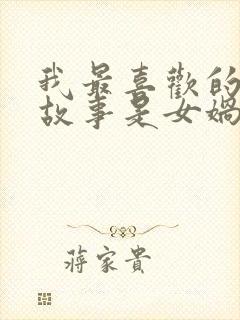 我最喜歡的
故事是女媧
蔣家貴